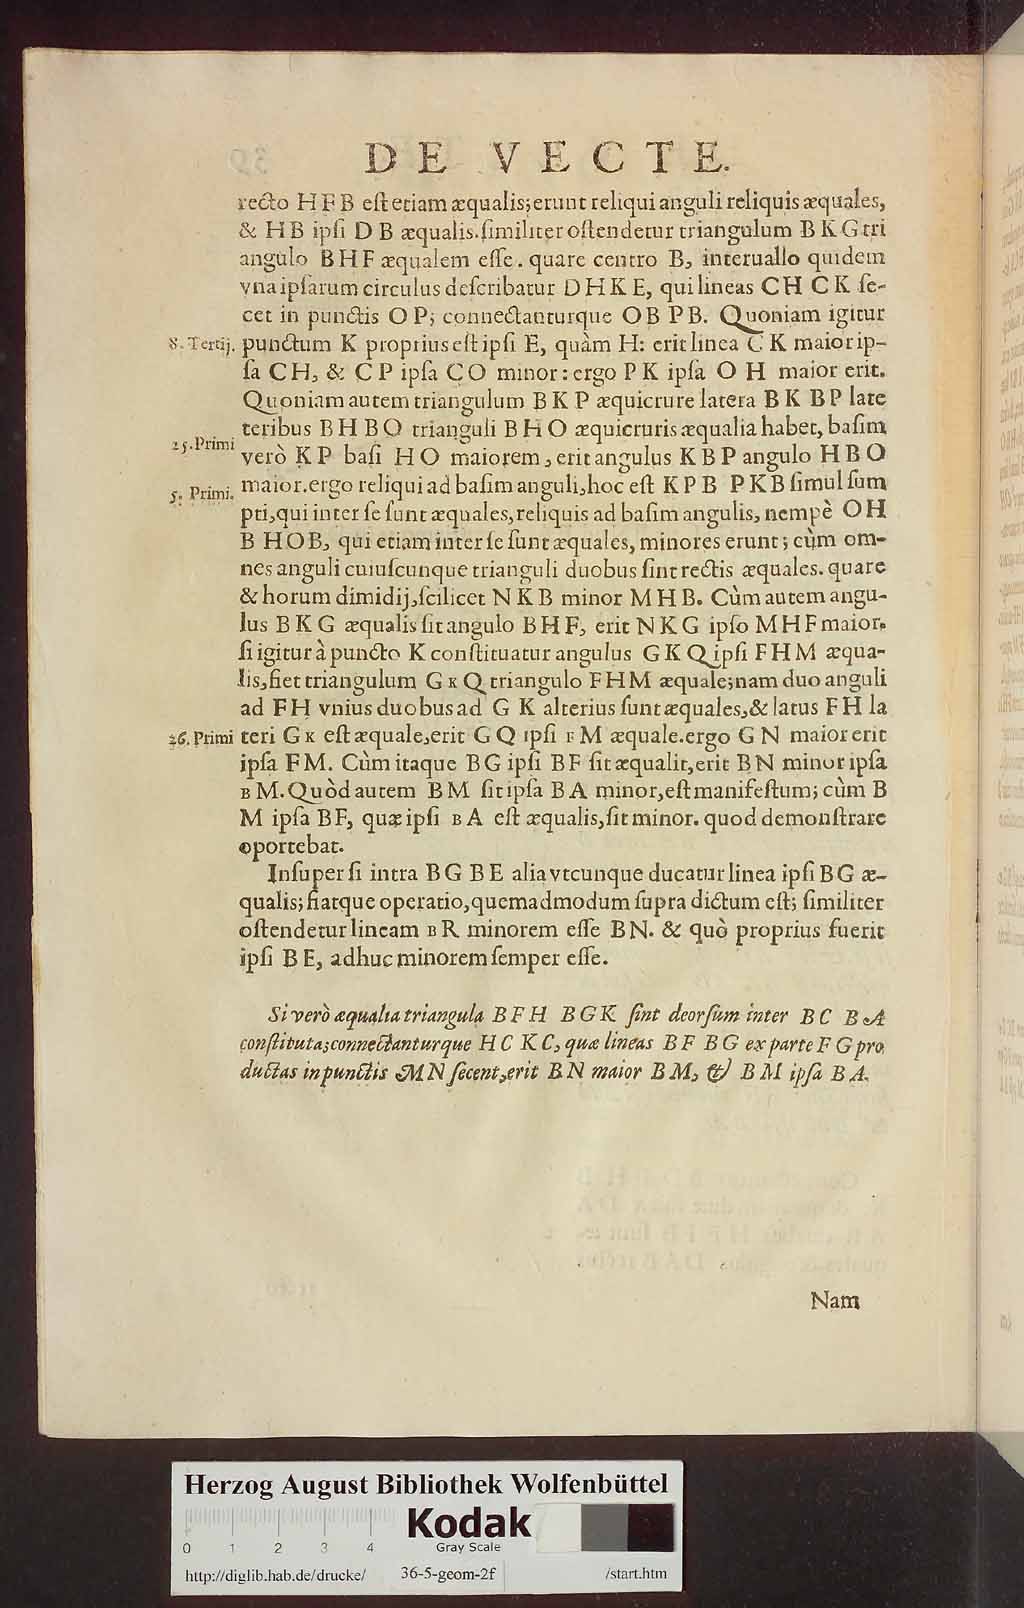 DE VECTE.
recto HFB eſt etiam æqualis; erunt reliqui anguli reliquis æquales,
& HB ipſi DB æqualis. ſimiliter oſtendetur triangulum BKG tri
angulo BHF æqualem eſſe. quare centro B, interuallo quidem
vna ipſarum circulus deſcribatur DHKE, qui lineas CH CK ſe-
cet in punctis OP; connectanturque OB PB. Quoniam igitur
8. Tertij. punctum K proprius eſt ipſi E, quàm H: erit linea CK maior ip-
ſa CH, & CP ipſa CO minor: ergo PK ipſa OH maior erit.
Quoniam autem triangulum BKP æquicrure latera BK BP late
teribus BHBO trianguli BHO æquicruris æqualia habet, baſim
25. Primi verò KP baſi HO maiorem, erit angulus KBP angulo HBO
5. Primi. maior. ergo reliqui ad baſim anguli, hoc eſt KPB PKB ſimul ſum
pti, qui inter ſe ſunt æquales, reliquis ad baſim angulis, nempè OH
B HOB, qui etiam inter ſe ſunt æquales, minores erunt; cùm om-
nes anguli cuiuſcunque trianguli duobus ſint rectis æquales. quare
& horum dimidij, ſcilicet NKB minor MHB. Cùm autem angu-
lus BKG æqualis ſit angulo BHF, erit NKG ipſo MHF maior.
ſi igitur à puncto K conſtituatur angulus GKQ ipſi FHM æqua-
lis, fiet triangulum GKQ triangulo FHM æquale; nam duo anguli
ad FH vnius duobus ad GK alterius ſunt æquales, & latus FH la
26. Primi teri GK eſt æquale, erit GQ ipſi FM æquale. ergo GN maior erit
ipſa FM. Cùm itaque BG ipſi BF ſit æqualit, erit BN minor ipſa
BM. Quòd autem BM ſit ipſa BA minor, eſt manifeſtum; cùm B
M ipſa BF, quæ ipſi BA eſt æqualis, ſit minor. quod demonſtrare
oportebat.
Inſuper ſi intra BG BE alia vtcunque ducatur linea ipſi BG æ-
qualis; fiatque operatio, quemadmodum ſupra dictum eſt; ſimiliter
oſtendetur lineam BR minorem eſſe BN. & quò proprius fuerit
ipſi BE, adhuc minorem ſemper eſſe.
Si verò æqualia triangula BFH BGK ſint deorſum inter BC BA
conſtituta; connectanturque HC KC, quæ lineas BF BG ex parte FG pro
ductas in punctis MN ſecent, erit BN maior BM, & BM ipſa BA.
Nam
Herzog August Bibliothek Wolfenbüttel
Kodak
Gray Scale
0 1 2 3 4
http://diglib.hab.de/drucke/ 36-5-geom-2f /start.htm